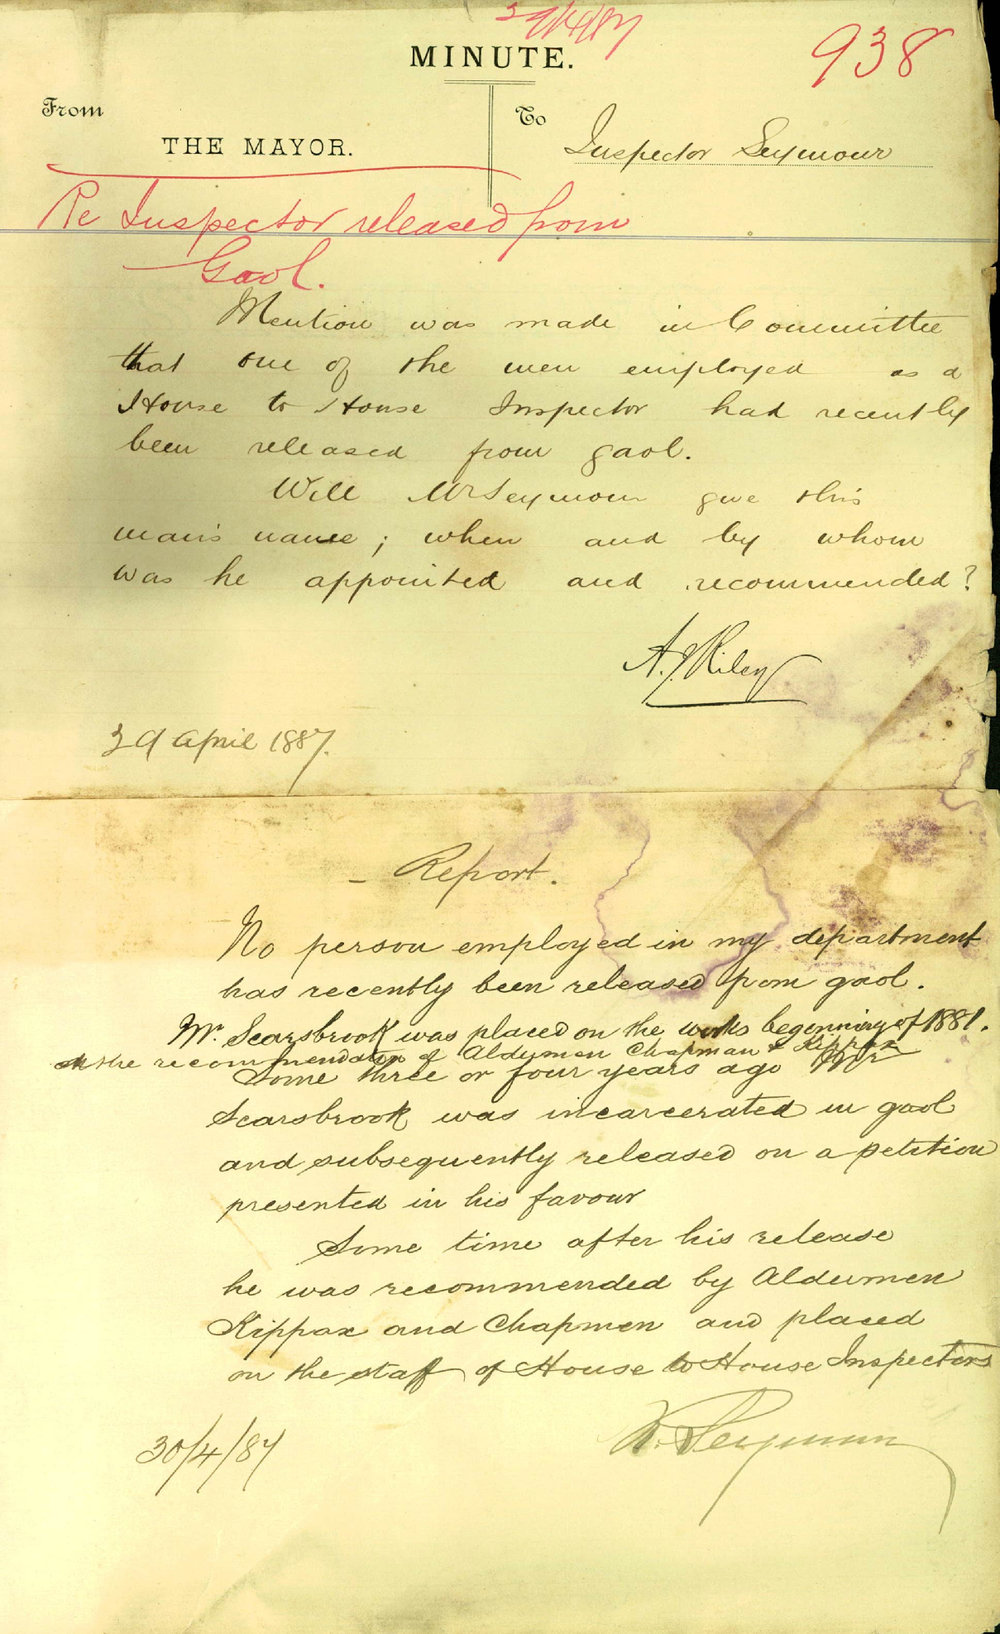 29/4/87
938
MINUTE.
From
To
THE MAYOR.
Inspector Seymour
Re Inspector released from
Gaol.
Mention was made in Committee
that one of the men employed as a
House to House Inspector had recently
been released from gaol.
Will Mr Seymour give this
man's name; when and by whom
was he appointed and recommended?
A.J. Riley
29 April 1887.
- Report.
No person employed in my department
has recently been released from gaol.
Mr. Scarsbrook was placed on the works beginning of 1881.
on the recommendation of Aldermen Chapman & Kippax
Some three or four years ago Mr
Scarsbrook was incarcerated in gaol
and subsequently released on a petition
presented in his favour
Some time after his release
he was recommended by Aldermen
Kippax and Chapmen and placed
on the staff of House to House Inspectors
R. Seymour
30/4/87